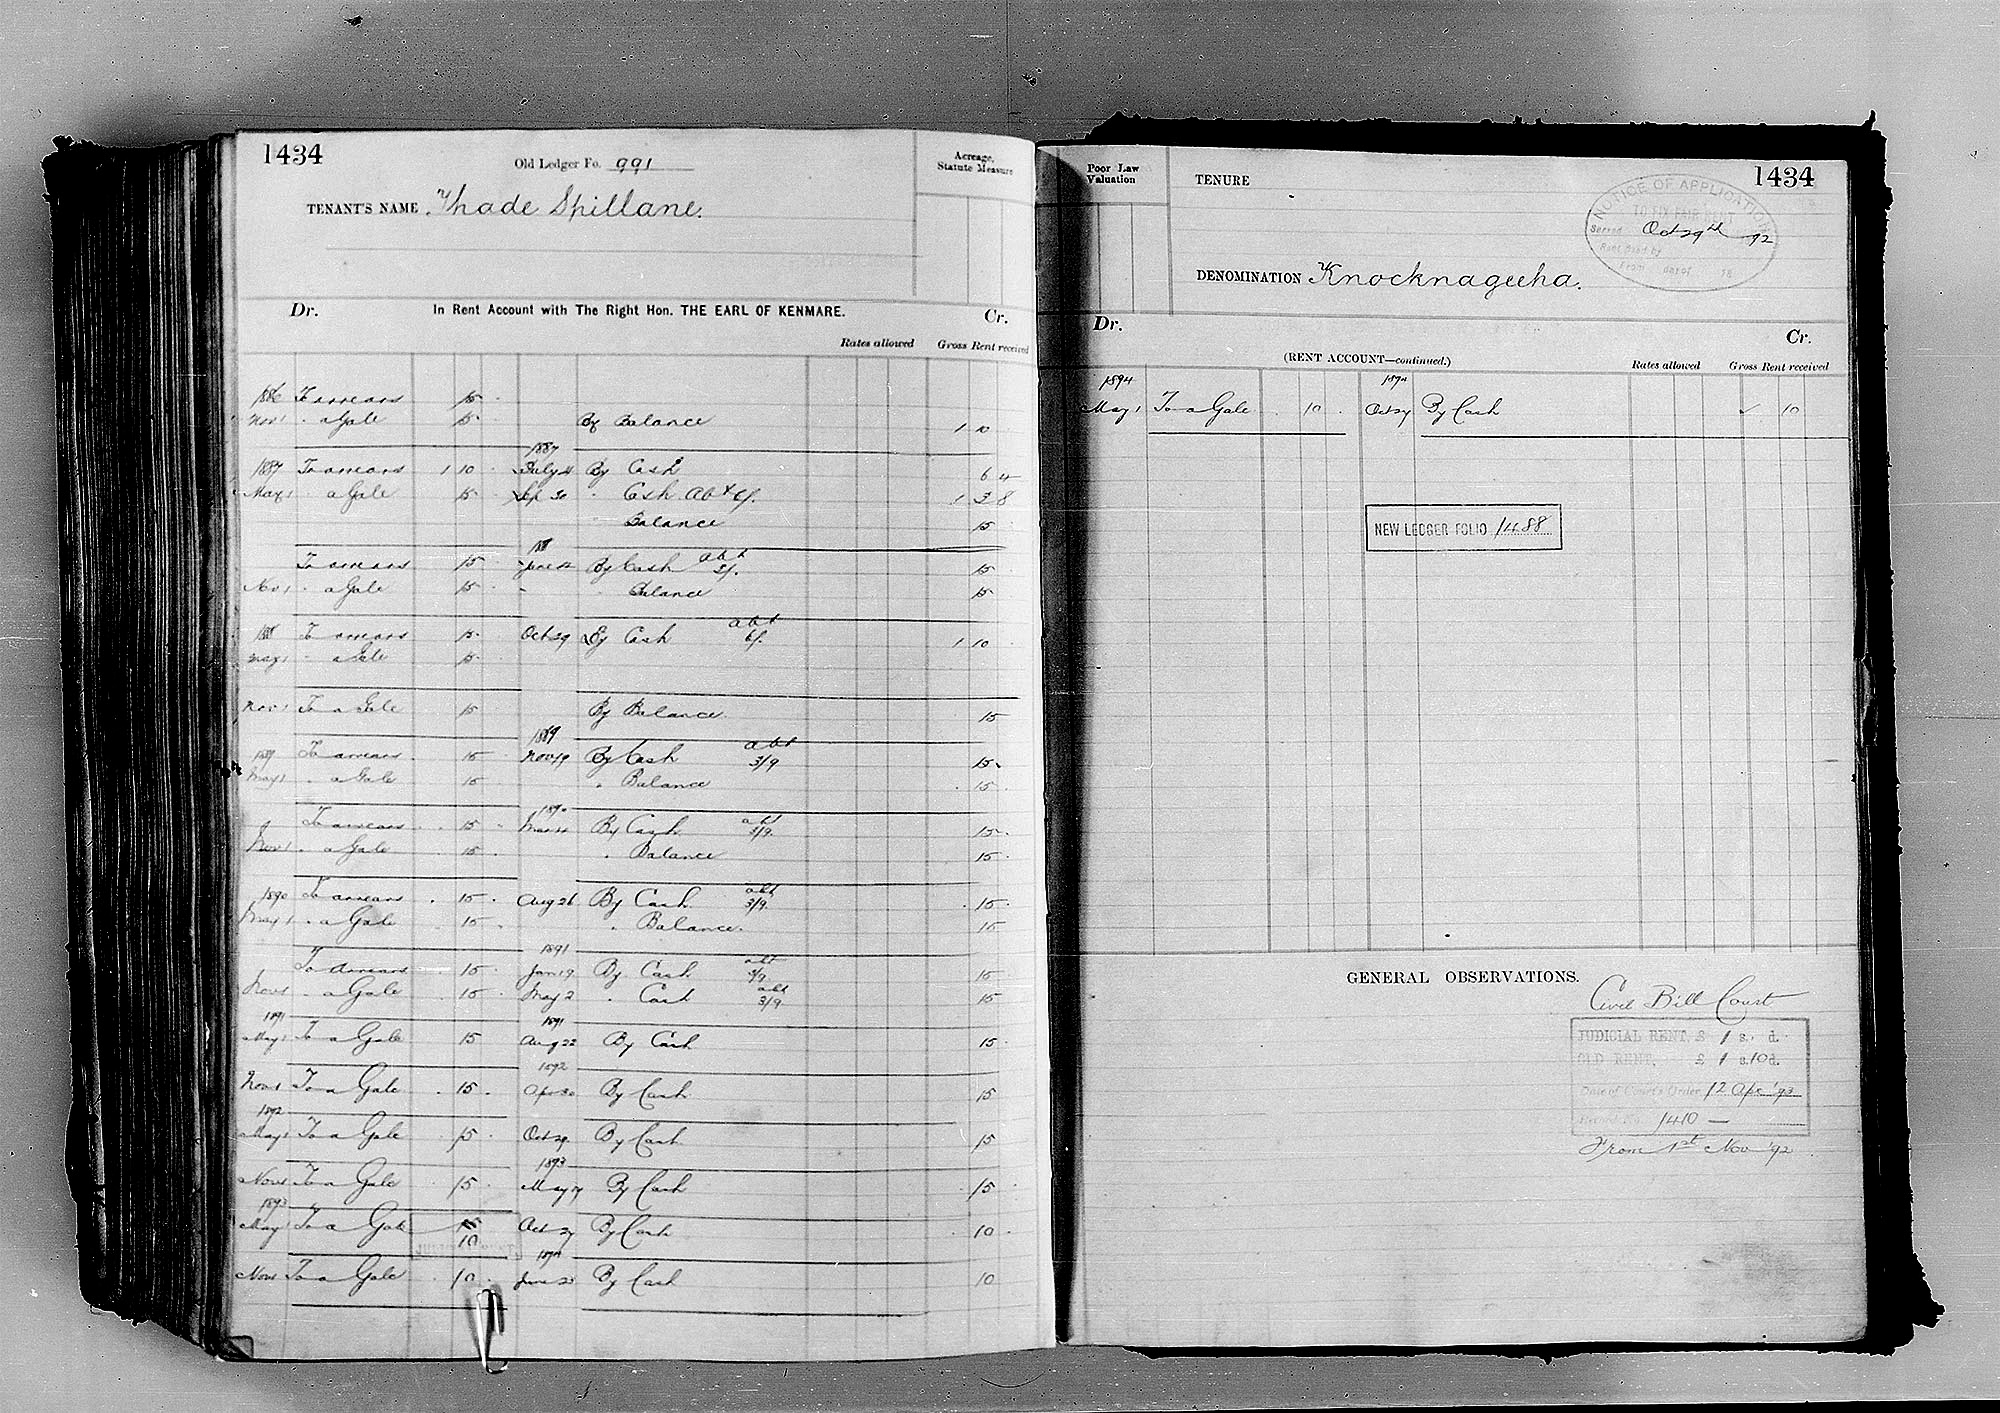 1434
Old Ledger Fo. 991
Acreage, Statute Measure
TENANT'S NAME Thade Spillane.
Dr. In Rent Account with The Right Hon. THE EARL OF KENMARE. Cr.
Rates allowed Gross Rent received
1886 To arrears 15
Nov 1 " a Gale 15 By Balance 1 10
1887
1887 To arrears 1 10 July 4 By Cash 6 4
May 1 " a Gale 15 Sep 30 " Cash Abt 6/. 1 3 8
Balance 15
1888 abt
To arrears 15 June 12 By Cash 3/. 15
Nov 1 " a Gale 15 " Balance 15
abt
1888 To arrears 15 Oct 29 By Cash 6/. 1 10
May 1 " a Gale 15
Nov 1 To a Gale 15 By Balance 15
1889 abt
1889 To arrears 15 Nov 19 By Cash 3/9 15
May 1 " a Gale 15 " Balance 15
1890 abt
To arrears 15 Mar By Cash 3/9 15
Nov 1 " a Gale 15 " Balance 15
abt
1890 To arrears 15 Aug 26 By Cash 3/9 15
May 1 " a Gale 15 " Balance. 15
1891 abt
To Arrears 15 Jan 19 By Cash 3/9 15
abt
Nov 1 " a Gale 15 May 2 " Cash 3/9 15
1891 1891
May 1 To a Gale 15 Aug 22 By Cash 15
1892
Nov 1 To a Gale 15 Apr 30 By Cash 15
1892
May 1 To a Gale 15 Oct 29 By Cash 15
1893
Nov 1 To a Gale 15 May By Cash 15
1893
May 1 To a Gale 15 Oct 27 By Cash 10
10
JUDICIAL RENT
1894
Nov 1 To a Gale 10 June By Cash 10
Poor Law Valuation
TENURE
1434
NOTICE OF APPLICATION
TO FIX FAIR RENT
Served Oct 29th 92
Rent fixed by
From day of 18
DENOMINATION Knocknageeha.
Dr. Cr.
(RENT ACCOUNT—continued.)
Rates allowed Gross Rent received
1894 1894
May 1 To a Gale 10 Oct 27 By Cash 10
NEW LEDGER FOLIO 1488
GENERAL OBSERVATIONS.
Civil Bill Court
JUDICIAL RENT, £ 1 s. d.
OLD RENT, £ 1 s. 10 d.
Date of Court's Order 12 Apr '93
Record No. 1410 —
From 1st Nov '92